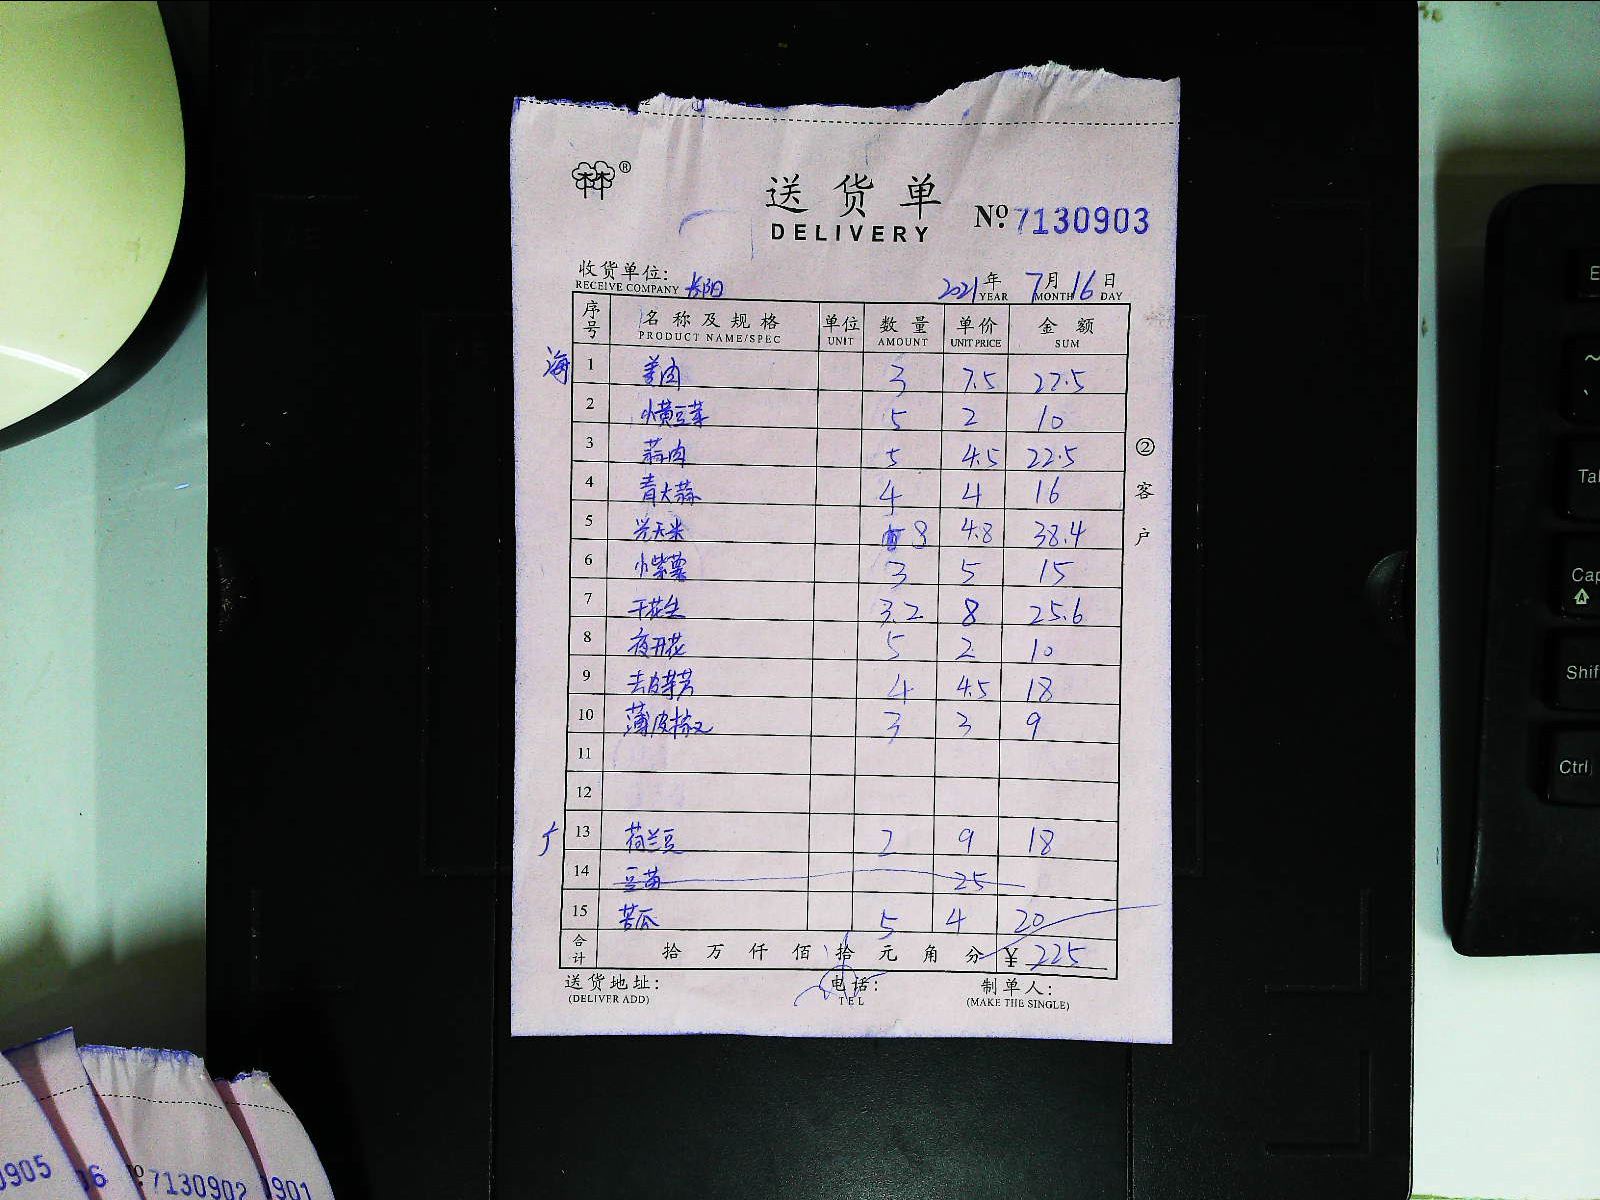 ®
送货单
DELIVERY
No. 7130903
收货单位:
RECEIVE COMPANY
2021 年 7 月 16 日
YEAR MONTH DAY
序号 名称及规格 单位 数量 单价 金额
PRODUCT NAME/SPEC UNIT AMOUNT UNIT PRICE SUM
海 1 姜肉 3 7.5 22.5
2 小黄豆芽 5 2 10
3 蒜肉 5 4.5 22.5
4 青大蒜 4 4 16
5 8 4.8 38.4
6 小紫薯 3 5 15
7 干花生 3.2 8 25.6
8 夜开花 5 2 10
9 去皮芋艿 4 4.5 18
10 薄皮椒 3 3 9
11
12
广 13 荷兰豆 2 9 18
14 豆苗 25
15 苦瓜 5 4 20
合计 拾 万 仟 佰 拾 元 角 分 ¥ 225
送货地址: 电话: 制单人:
(DELIVER ADD) TEL (MAKE THE SINGLE)
②客户
Ctrl
905
06
7130902
901